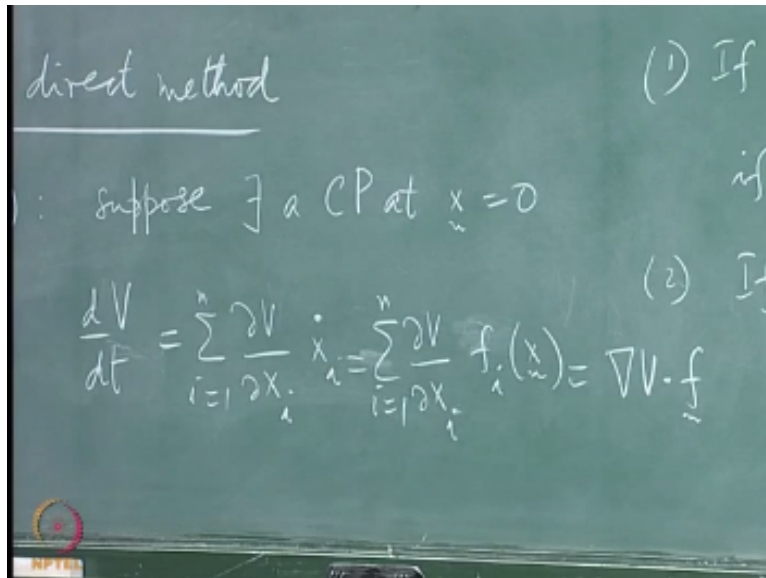 direct method
(1) If
: suppose ∃ a CP at x̰ = 0
if
(2) If
dV/dt = Σ_{i=1}^{n} ∂V/∂x_i ẋ_i = Σ_{i=1}^{n} ∂V/∂x_i f_i(x̰) = ∇V · f̰
NPTEL